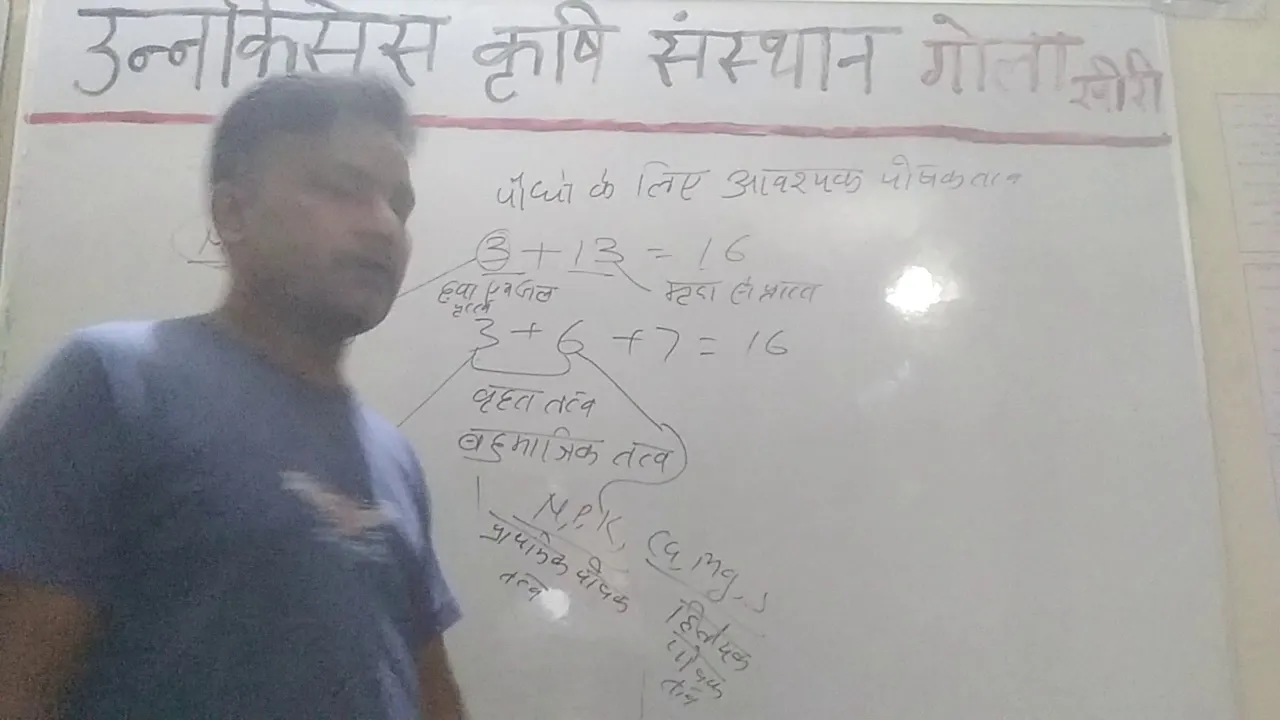 उन्नोकेसेस कृषि संस्थान गोला खीरी
पौधों के लिए आवश्यक पोषक तत्व
3 + 13 = 16
हवा एवं जल
मृदा से प्राप्त
3 + 6 + 7 = 16
वृहत तत्व
बहुमात्रिक तत्व
N, P, K, Ca, Mg, S
प्राथमिक पोषक
तत्व
द्वितीयक
पोषक
तत्व